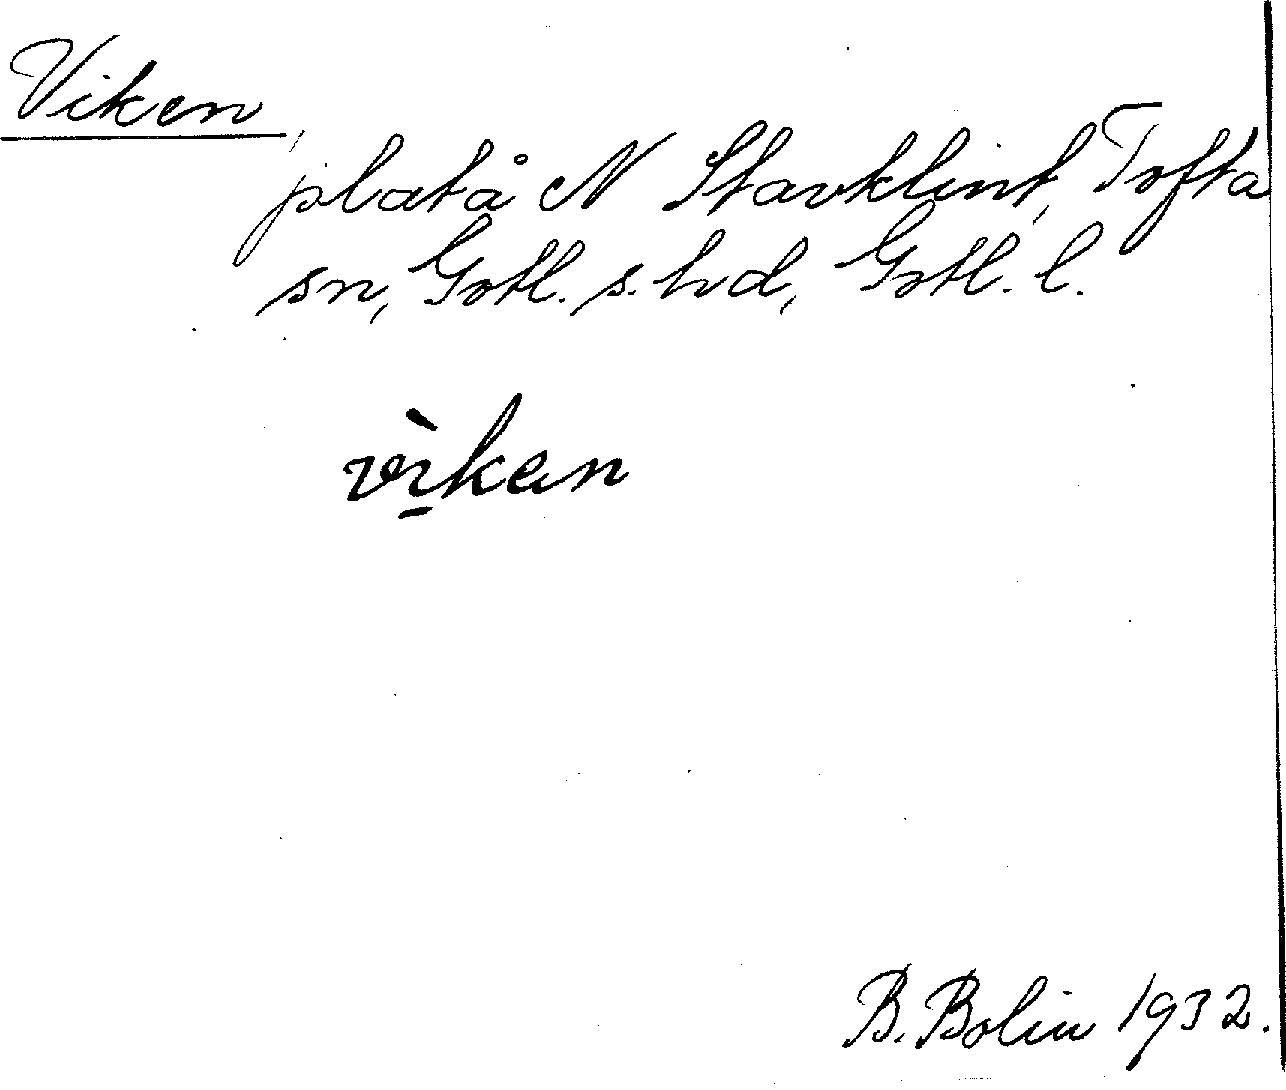 Viken,
platå N Stavklint, Tofta
sn, Gotl. s. hd, Gotl. l.
vi̠̇̀ken
B. Bolin 1932.